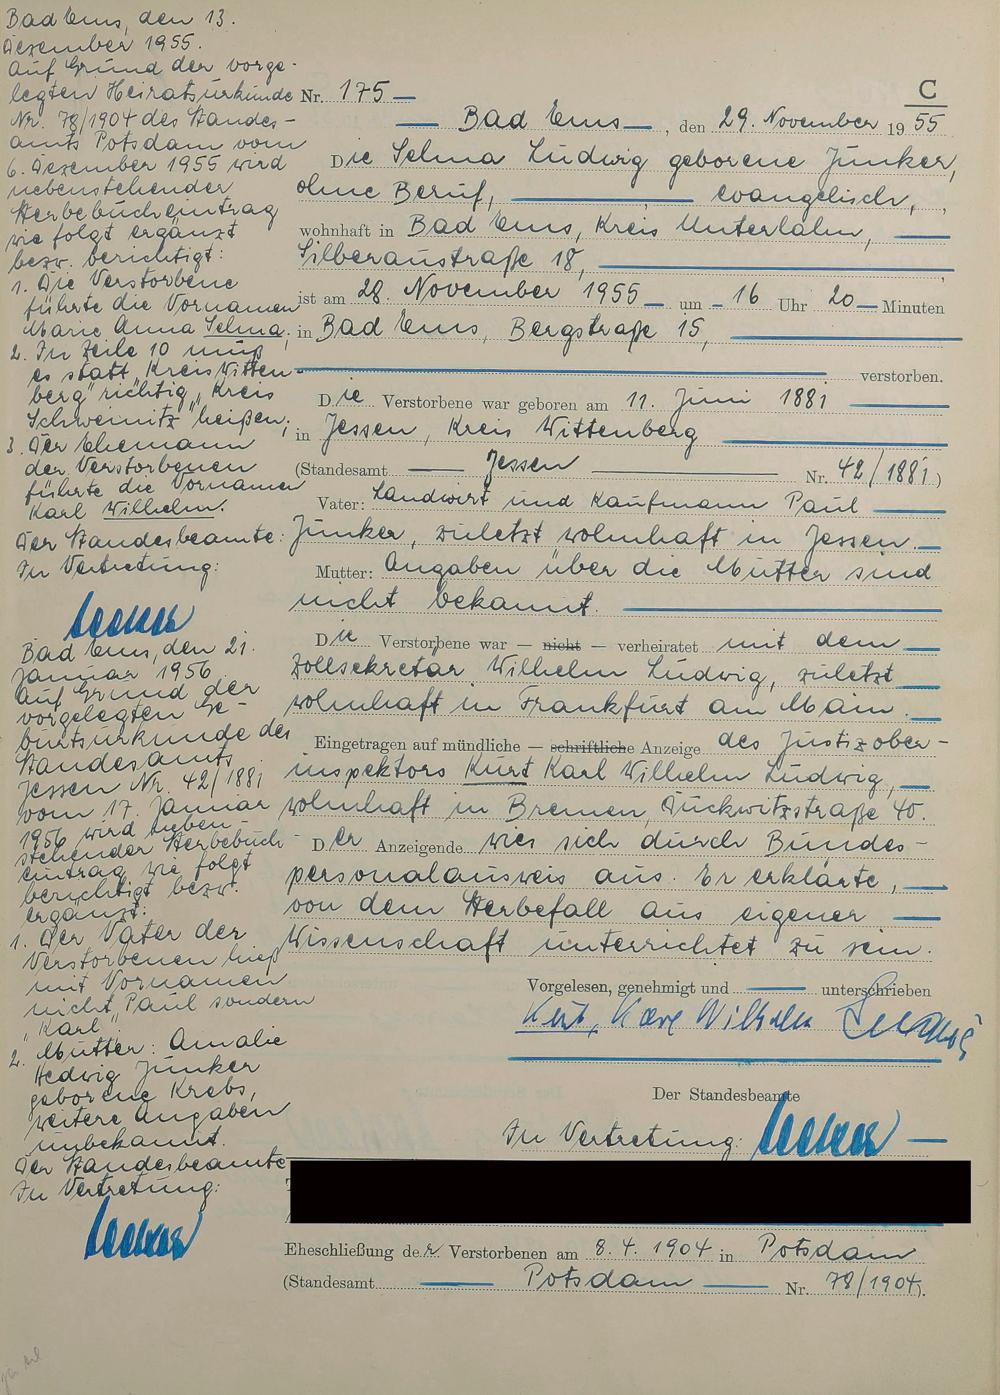 Bad Ems, den 13.
Dezember 1955.
Auf Grund der vorge-
legten Heiratsurkunde
Nr. 78/1904 des Standes-
amts Potsdam vom
6. Dezember 1955 wird
nebenstehender
Sterbebucheintrag
wie folgt ergänzt
bezw. berichtigt:
1. Die Verstorbene
führte die Vornamen
Marie Anna Selma;
2. In Zeile 10 muß
es statt „Kreis Witten-
berg" richtig „Kreis
Schweinitz" heißen;
3. Der Ehemann
der Verstorbenen
führte die Vornamen
Karl Wilhelm.
Der Standesbeamte:
In Vertretung:
Bad Ems, den 21.
Januar 1956
Auf Grund der
vorgelegten Ge-
burtsurkunde des
Standesamts
Jessen Nr. 42/1881
vom 17. Januar
1956 wird neben-
stehender Sterbebuch-
eintrag wie folgt
berichtigt bezw.
ergänzt:
1. Der Vater der
Verstorbenen hieß
mit Vornamen
nicht „Paul" sondern
„Karl".
2. Mutter: Amalie
Hedwig Junker
geborene Krebs,
weitere Angaben
unbekannt.
Der Standesbeamte
In Vertretung:
C
Nr. 175
Bad Ems, den 29. November 1955
Die Selma Ludwig geborene Junker,
ohne Beruf, evangelisch,
wohnhaft in Bad Ems, Kreis Unterlahn,
Silberaustraße 18,
ist am 28. November 1955 um 16 Uhr 20 Minuten
in Bad Ems, Bergstraße 15,
verstorben.
Die Verstorbene war geboren am 11. Juni 1881
in Jessen, Kreis Wittenberg
(Standesamt Jessen Nr. 42/1881)
Vater: Landwirt und Kaufmann Paul
Junker, zuletzt wohnhaft in Jessen.
Mutter: Angaben über die Mutter sind
nicht bekannt.
Die Verstorbene war — nicht — verheiratet mit dem
Zollsekretär Wilhelm Ludwig, zuletzt
wohnhaft in Frankfurt am Main.
Eingetragen auf mündliche — schriftliche Anzeige des Justizober-
inspektors Kurt Karl Wilhelm Ludwig,
wohnhaft in Bremen, Duckwitzstraße 40.
Der Anzeigende wies sich durch Bundes-
personalausweis aus. Er erklärte,
von dem Sterbefall aus eigener
Wissenschaft unterrichtet zu sein.
Vorgelesen, genehmigt und unterschrieben
Kurt, Karl Wilhelm Ludwig
Der Standesbeamte
In Vertretung:
Eheschließung der Verstorbenen am 8. 4. 1904 in Potsdam
(Standesamt Potsdam Nr. 78/1904).